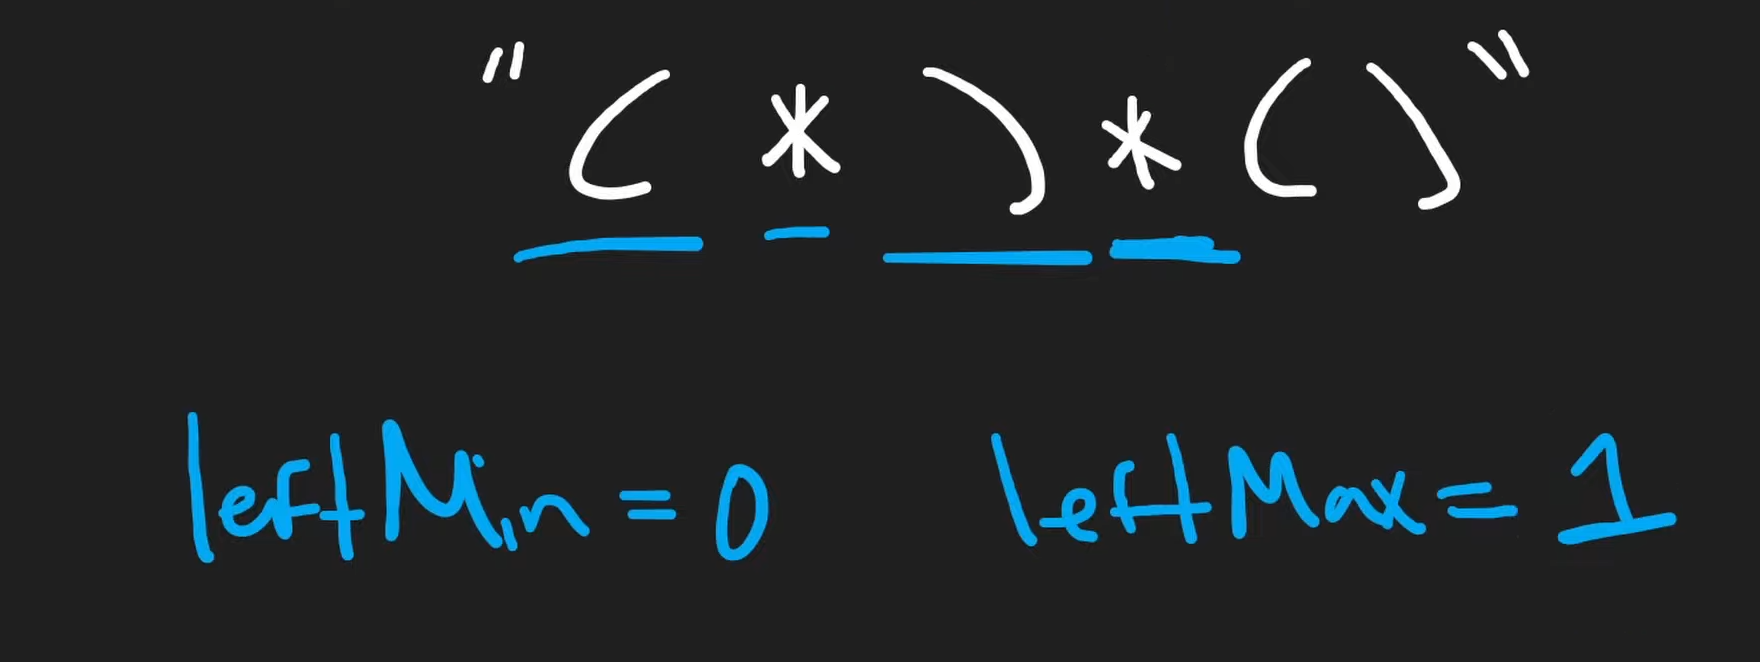 "(*)*()"
leftMin = 0 leftMax = 1